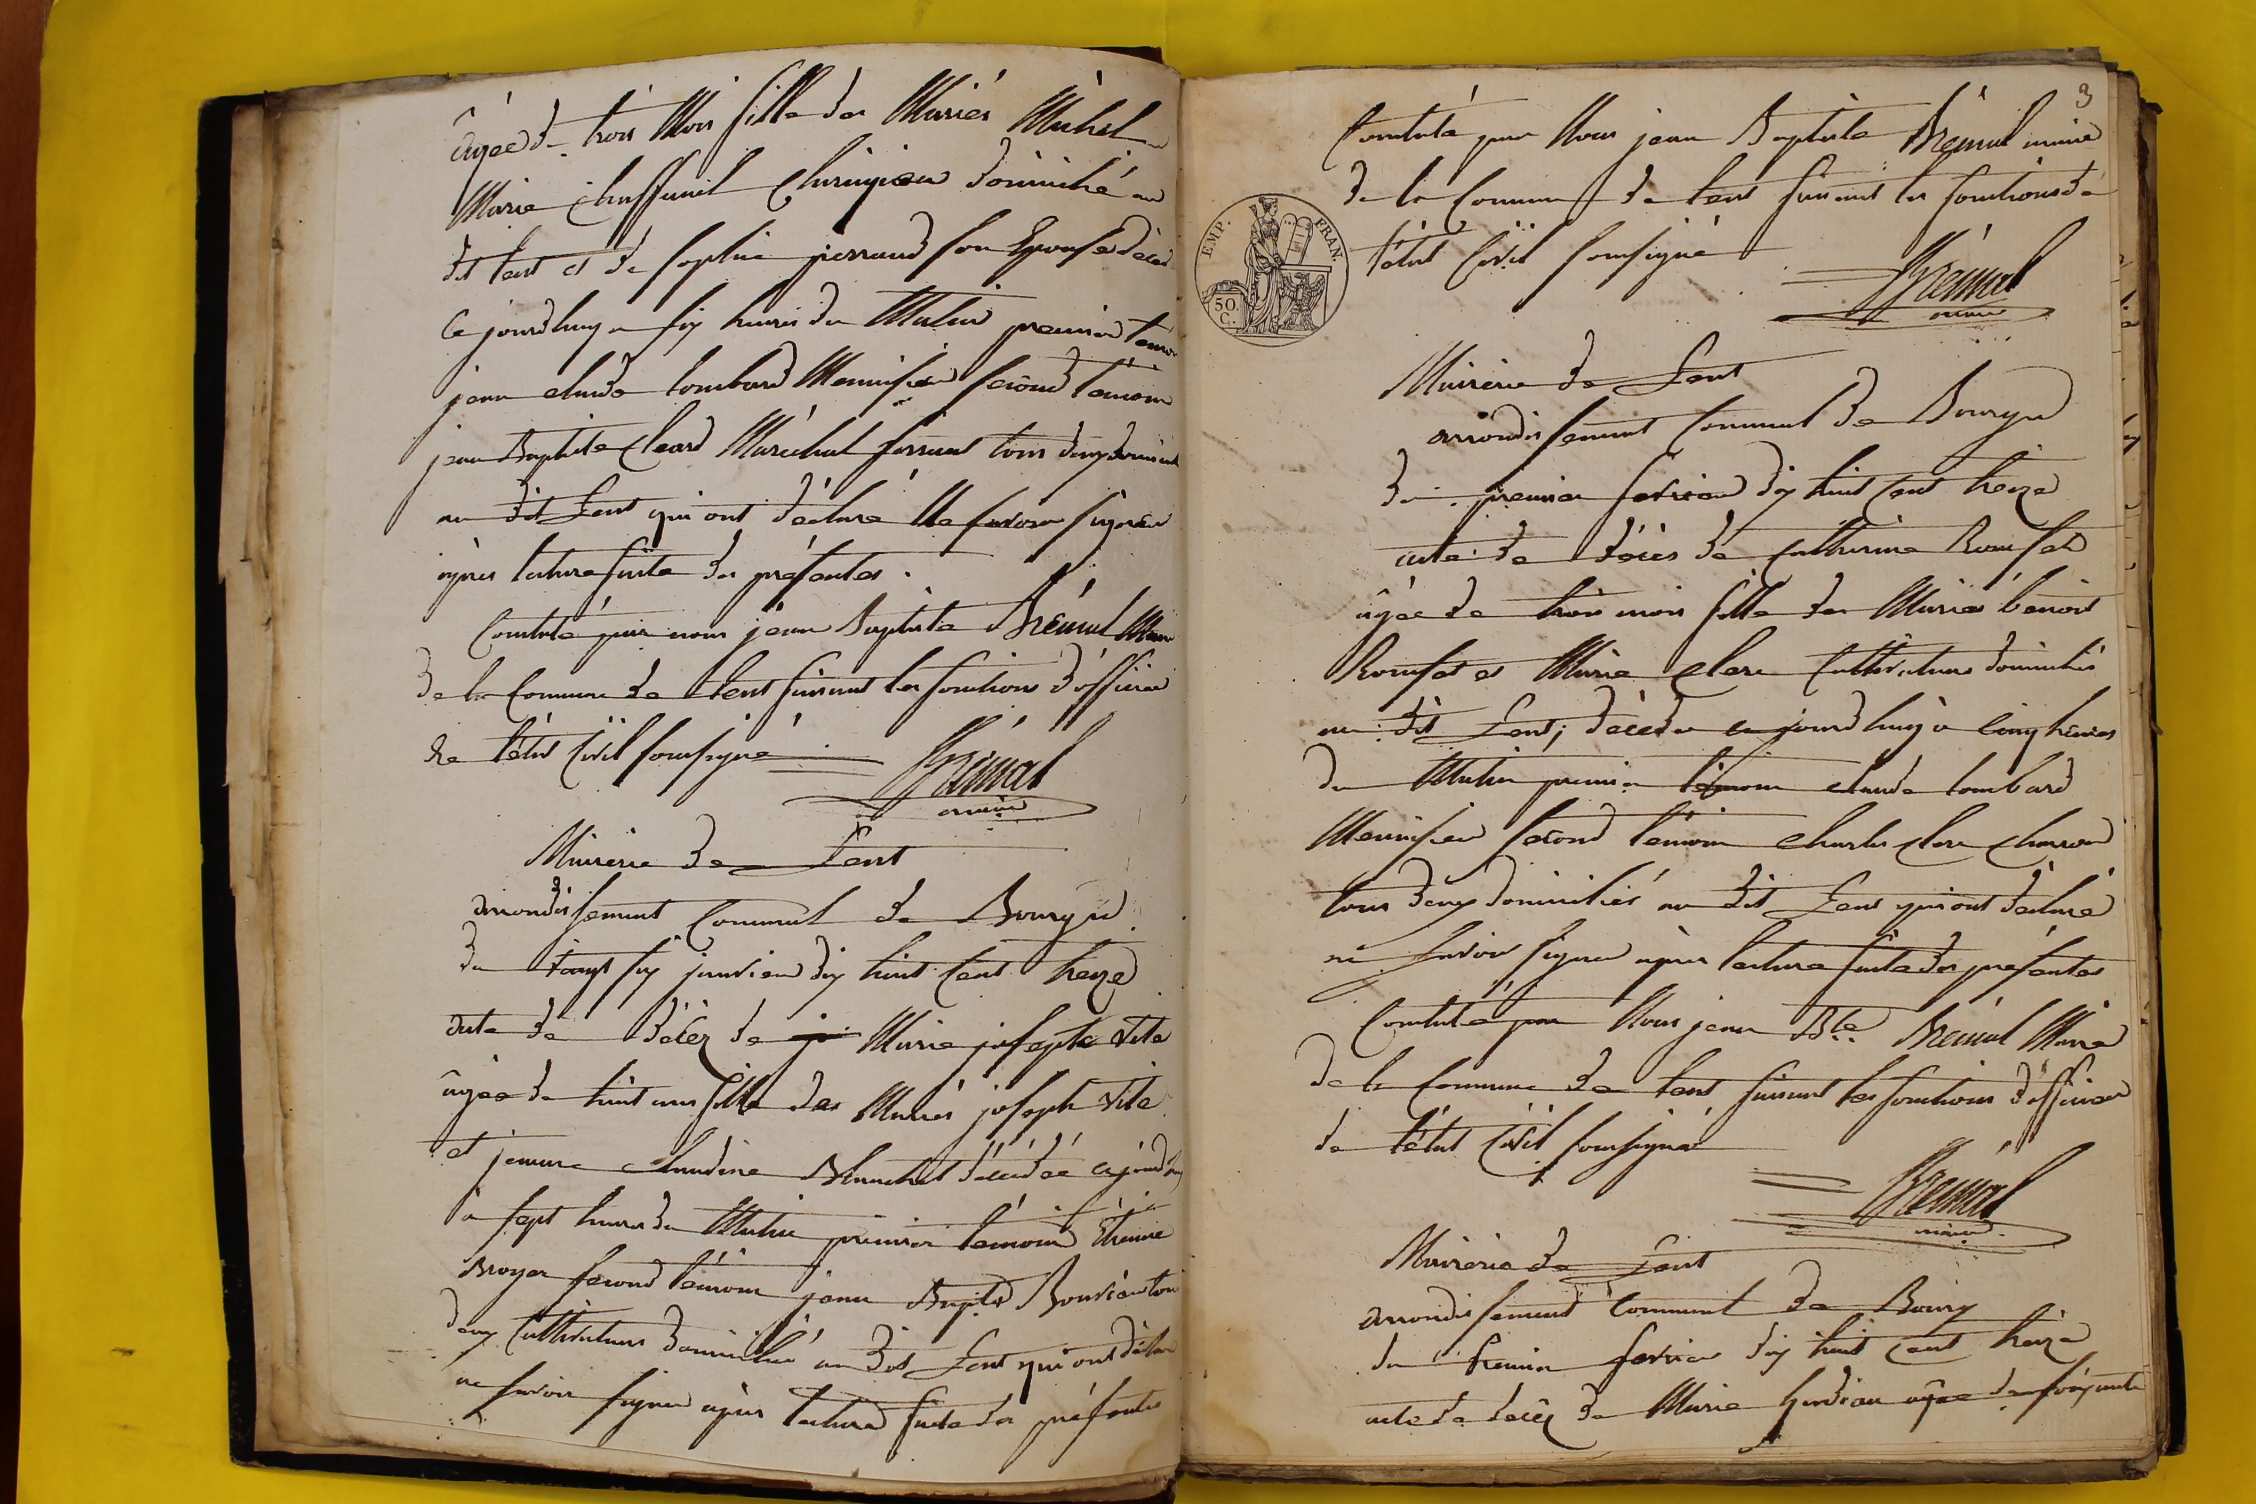 âgée de trois Mois fille des Mariés Michel
Marie Chirurgien domicilié au
dit Lent et de sophie perraud son Epouse décéd
Ce jourdhuy a six heures du Matin premier témo
jean claude lombard Menuisier second témoin
jean Baptiste Clerd Maréchal ferrant tous deux domicil
au dit Lent qui ont déclaré Ne savoir signer
après lecture faite des présentes.
Constaté par nous jean Baptiste Brémal Maire
de la Commune de Lent faisant les fonctions d'officier
de l'état Civil soussigné
Brémal
maire
Mairerie de Lent
arrondissement Communal de Bourg
du vingt six janvier dix huit Cent treize
acte de décéz de Marie josephte Vite
âgée de huit ans fille des Mariés joseph Vite
et jeanne claudine Blanchet décédée cejourdhuy
à sept heures du Matin premier témoin Etienne
Broyer second témoin jean Bapte Bouvier tous
deux Cultivateurs domiciliés au dit Lent qui ont déclaré
ne savoir signer après lecture faite des présentes
3
Constaté par Nous jean Baptiste Brémal maire
de la Commune de Lent faisant les fonctions de
l'état Civil soussigné
Brémal
maire
EMP. FRAN.
50. C.
Mairerie de Lent
arrondissement Communal de Bourg
du premier fevrier dix huit Cent treize
acte de décès de Catherine
âgée de trois mois fille des Mariés benoit
et Marie clere Cultivateurs domiciliés
au dit Lent; décédée cejourdhuy a Cinq heures
du Matin premier témoin claude lombard
Menuisier second témoin charles clere charron
tous deux domiciliés au dit Lent qui ont déclaré
ne savoir signer après lecture faite des présentes
Constaté par Nous jean Bte. Brémal Maire
de la Commune de Lent faisant les fonctions d'officier
de l'état Civil soussigné
Brémal
maire
Mairerie de Lent
arrondissement Communal de Bourg
du premier fevrier dix huit Cent treize
acte de décéz de Marie âgée de soixante